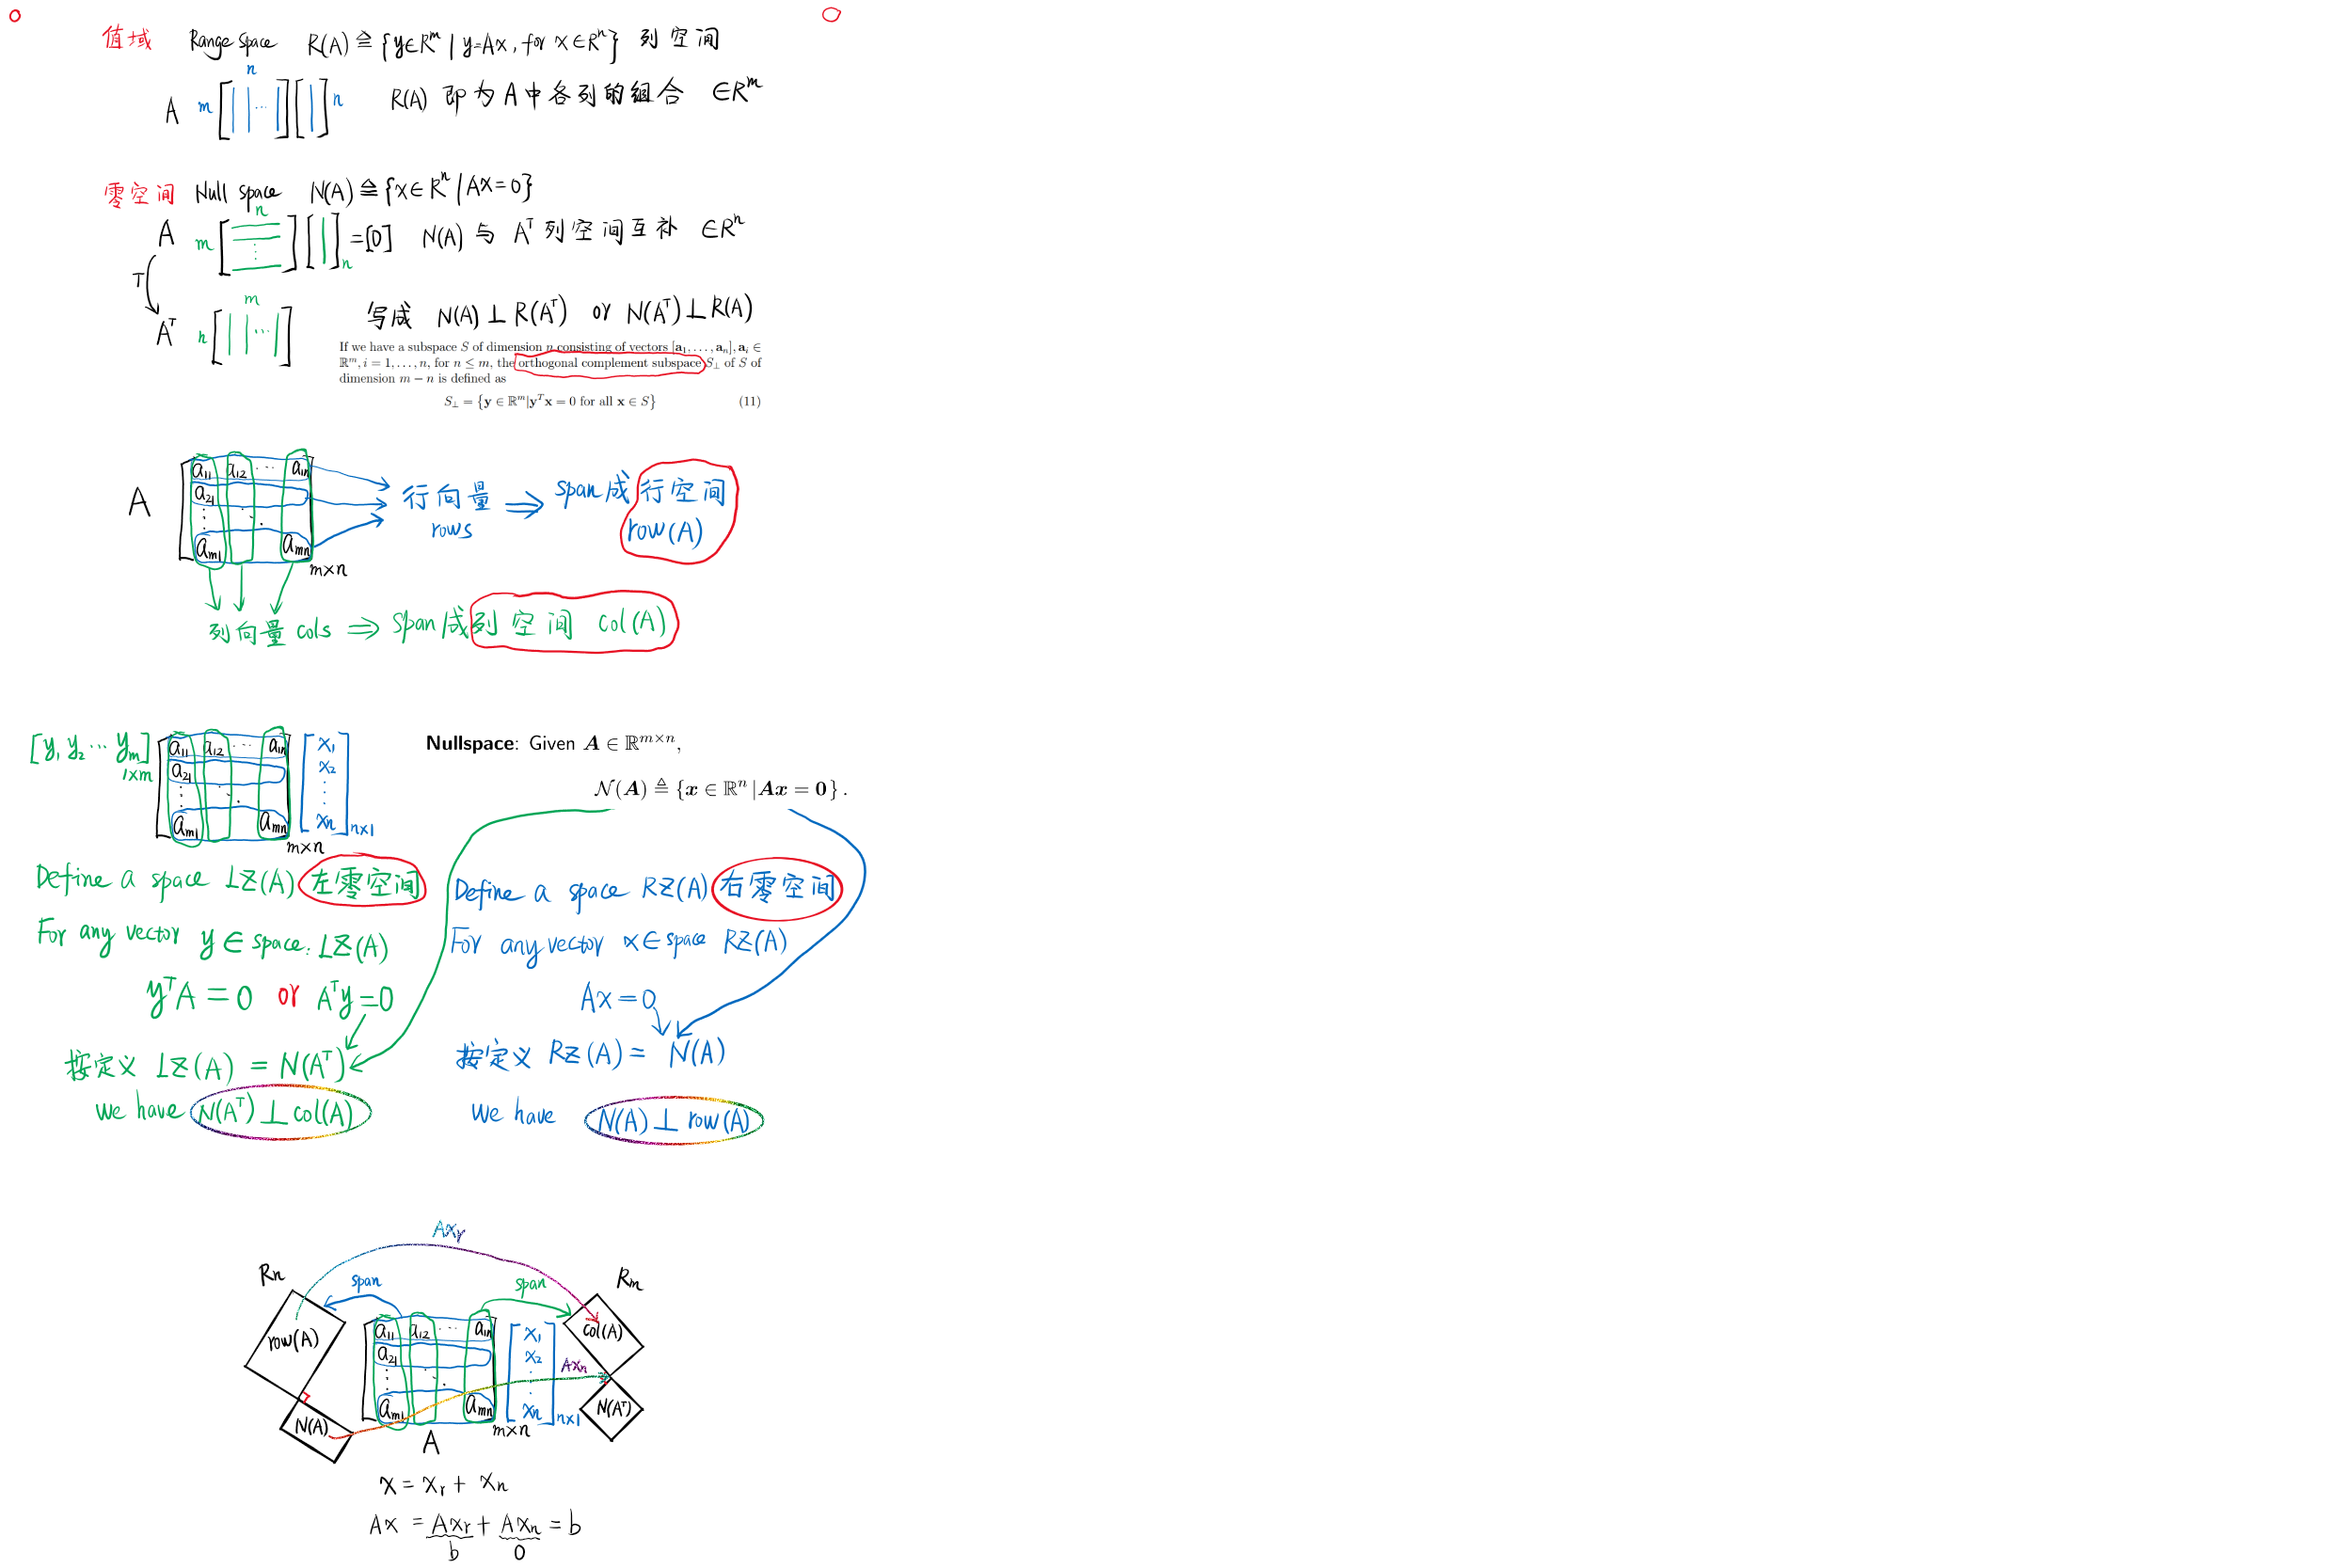 值域 Range space R(A)≜{y∈Rᵐ | y=Ax, for x∈Rⁿ} 列空间
n
A m [ | | ··· | ] [ | ] n R(A) 即为A中各列的组合 ∈Rᵐ
零空间 Null space N(A)≜{x∈Rⁿ | Ax=0}
n
A m [ ⋮ ] [ | ] n =[0] N(A) 与 Aᵀ列空间互补 ∈Rⁿ
T
m
Aᵀ n [ | | ··· | ] 写成 N(A)⊥R(Aᵀ) or N(Aᵀ)⊥R(A)
If we have a subspace S of dimension n consisting of vectors [a₁, . . . , aₙ], aᵢ ∈
ℝᵐ, i = 1, . . . , n, for n ≤ m, the orthogonal complement subspace S⊥ of S of
dimension m − n is defined as
S⊥ = {y ∈ ℝᵐ|yᵀx = 0 for all x ∈ S} (11)
a₁₁ a₁₂ ··· a₁ₙ
a₂₁
A 行向量 ⇒ span成行空间
rows row(A)
aₘ₁ aₘₙ
m×n
列向量 cols ⇒ span成列空间 col(A)
[y₁ y₂ ··· yₘ] 1×m
a₁₁ a₁₂ ··· a₁ₙ x₁
a₂₁ x₂
aₘ₁ aₘₙ xₙ n×1
m×n
Nullspace: Given A ∈ ℝᵐˣⁿ,
N(A) ≜ {x ∈ ℝⁿ | Ax = 0} .
Define a space LZ(A) 左零空间
For any vector y ∈ space: LZ(A)
yᵀA = 0 or Aᵀy=0
按定义 LZ(A) = N(Aᵀ)
we have N(Aᵀ)⊥col(A)
Define a space RZ(A) 右零空间
For any vector x∈space RZ(A)
Ax=0
按定义 RZ(A)= N(A)
we have N(A)⊥row(A)
Axᵣ
Rn span span Rm
row(A) a₁₁ a₁₂ ··· a₁ₙ x₁ col(A)
a₂₁ x₂ Axₙ
N(A) aₘ₁ aₘₙ xₙ n×1 N(Aᵀ)
m×n
A
x = xᵣ + xₙ
Ax = Axᵣ + Axₙ = b
b 0